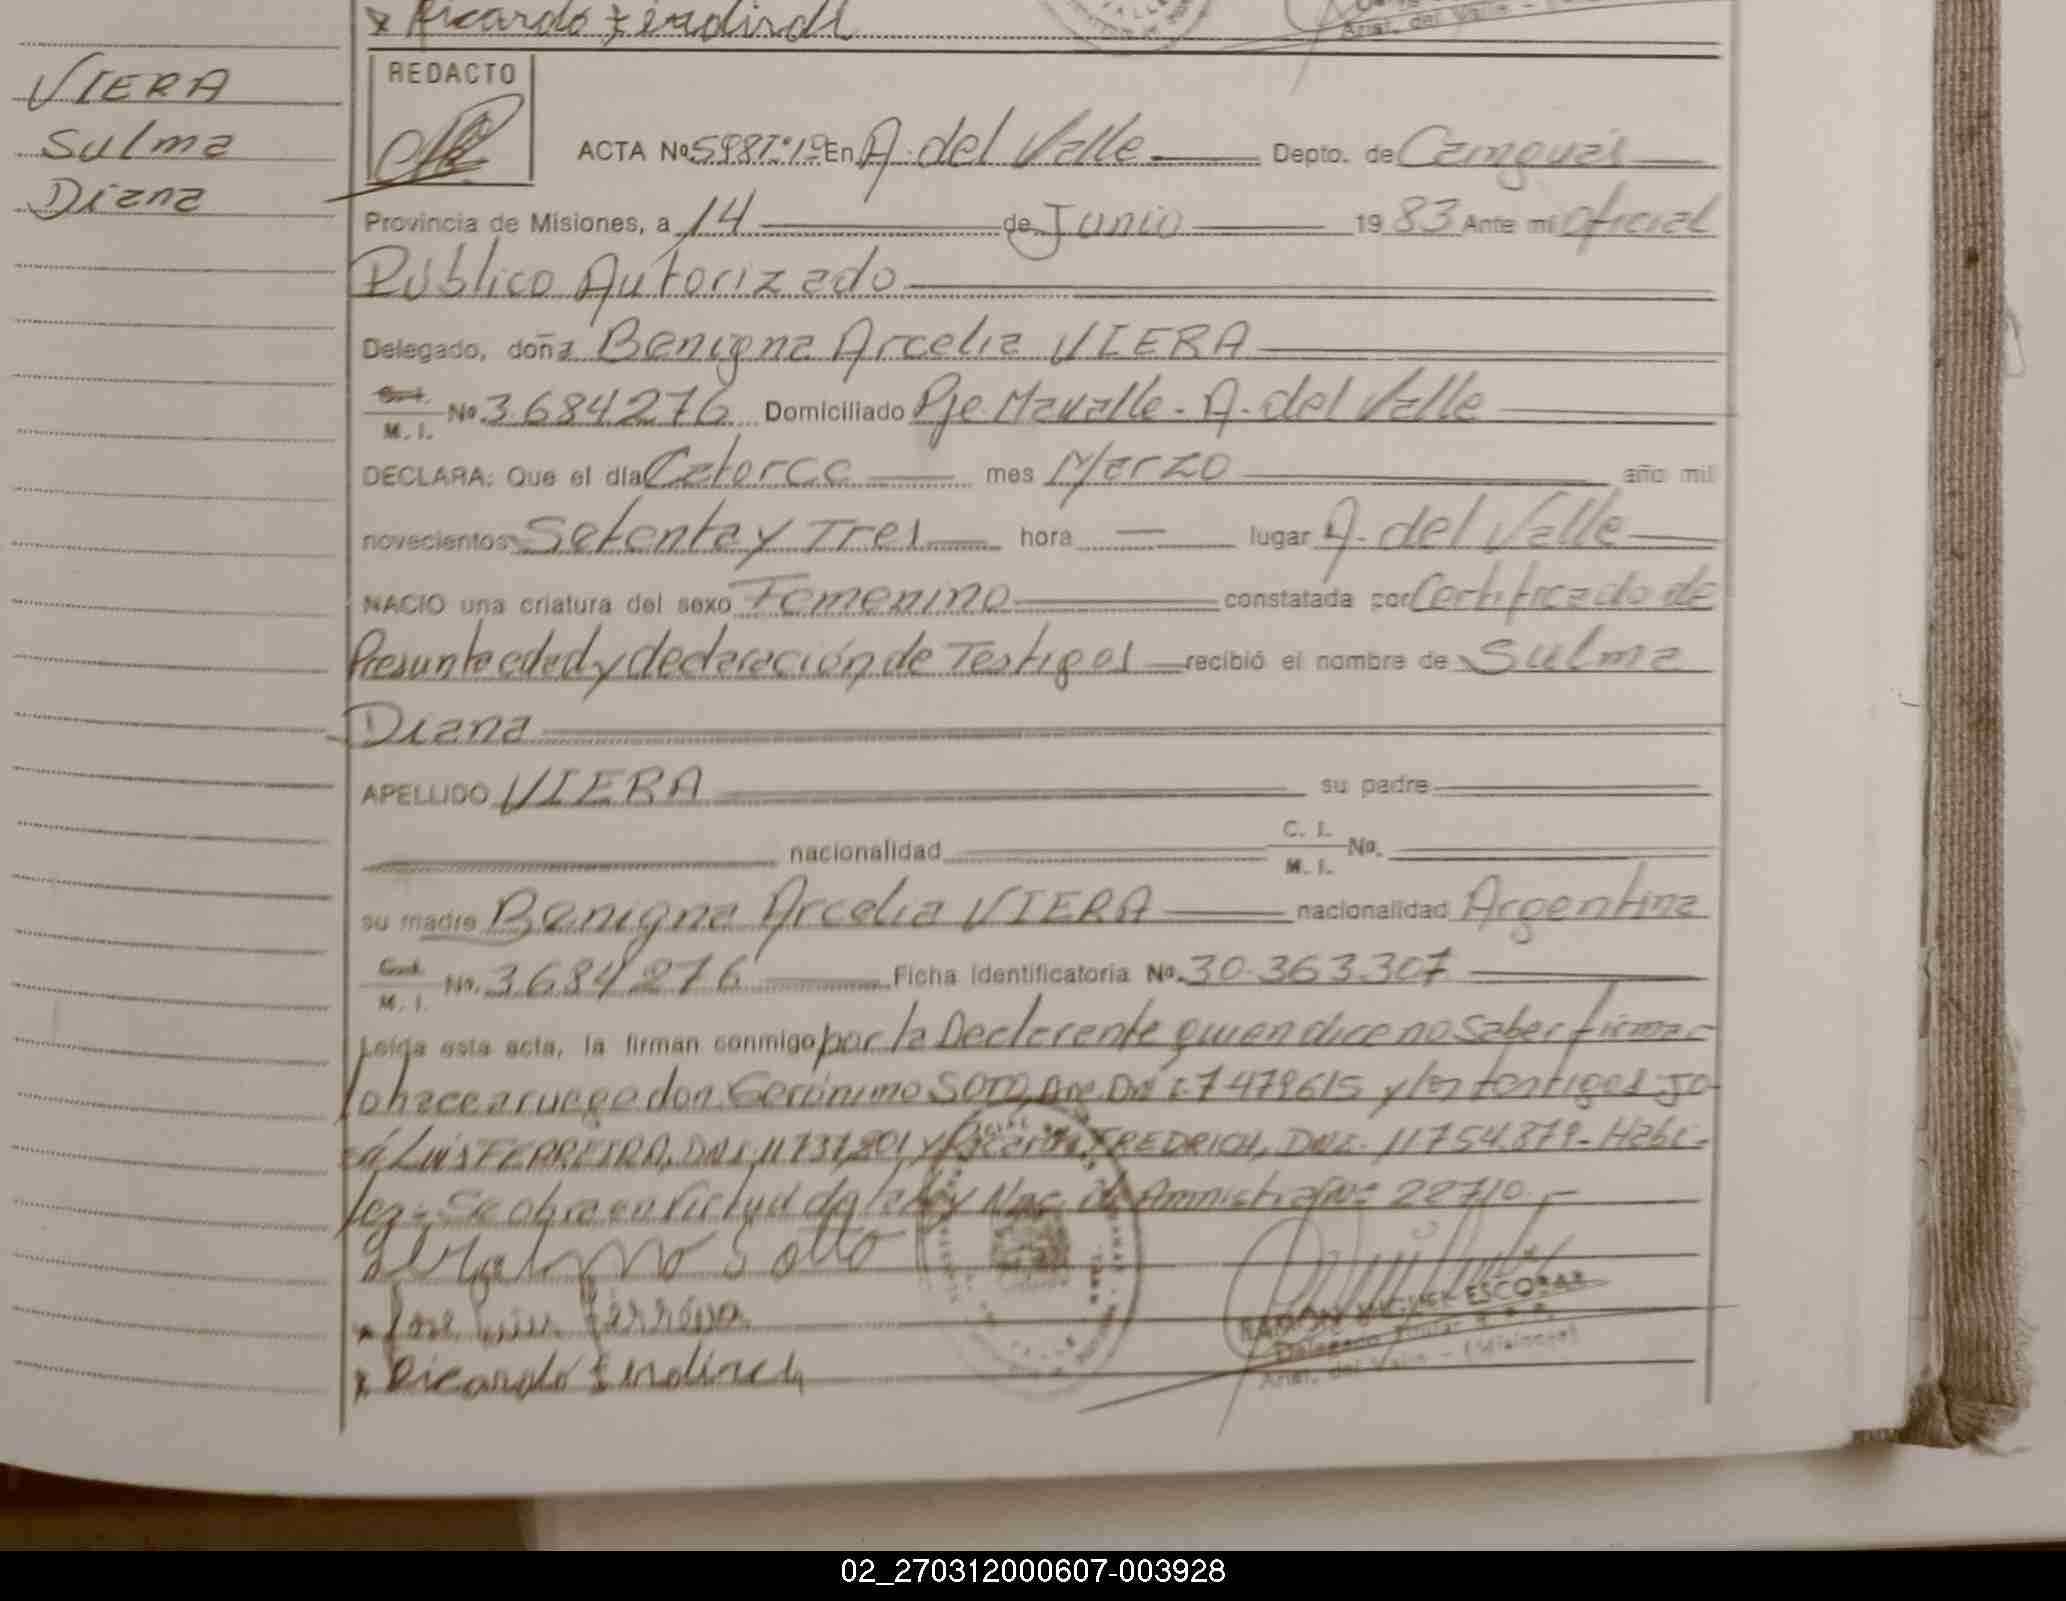 x Ricardo
Arist. del Valle -
VIERA
Sulma
Diana
REDACTO
ACTA No. 598 Tº 19 En A. del Valle Depto. de Cainguás
Provincia de Misiones, a 14 de Junio 1983 Ante mi Oficial
Público Autorizado
Delegado, doña Benigna Arcelia VIERA
M. I. No. 3.684276 Domiciliado Pje. Mavalle - A. del Valle
DECLARA: Que el día Catorce mes Marzo año mil
novecientos Setenta y Tres hora — lugar A. del Valle
NACIO una criatura del sexo Femenino constatada por Certificado de
Presunta edad y declaración de Testigos recibió el nombre de Sulma
Diana
APELLIDO VIERA su padre
nacionalidad C. I. M. I. No.
su madre Benigna Arcelia VIERA nacionalidad Argentina
M. I. No. 3684276 Ficha identificatoria No. 30.363.307
Leída esta acta, la firman conmigo por la Declarante quien dice no saber firmar
lo hace a ruego don Gerónimo SOTO, Arg. DNI. 7479615 y los testigos Jo-
sé Luis FERREIRA, DNI. 11731,801 y Ricardo FREDRICH, DNI. 11754.879 - Hábi-
les - Se obra en virtud de la ley Nac. de Amnistia Nº 22710.-
Sotto
x Jose Luis Ferreira
x Ricardo
RAMON MIGUEL ESCOBAR
Delegado Titular
Arist. del Valle - (Misiones)
02_270312000607-003928